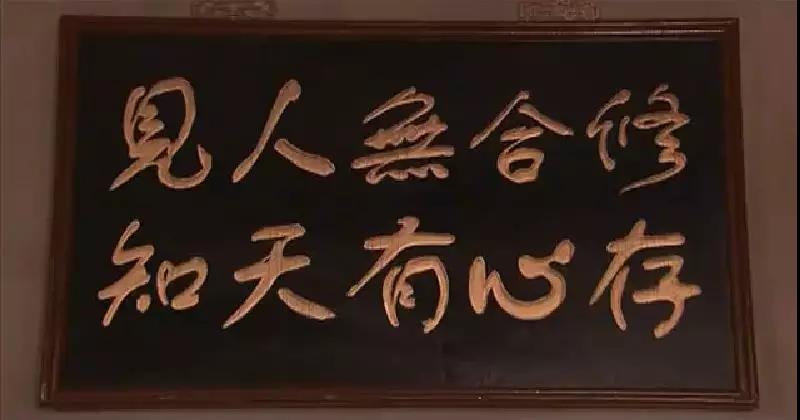 修合無人見
存心有天知